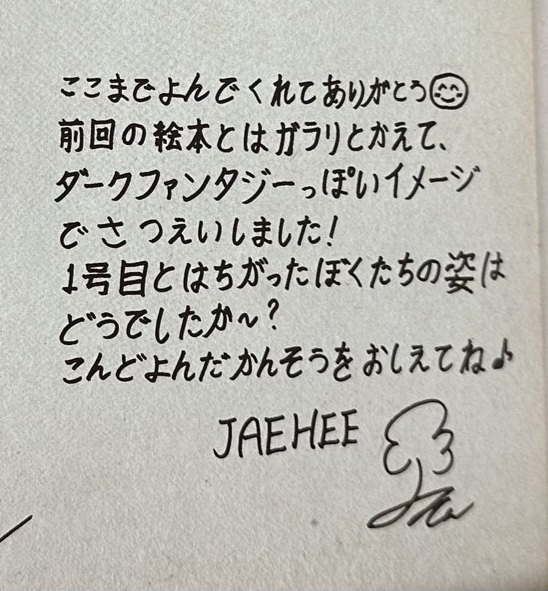 ここまでよんでくれてありがとう😊
前回の絵本とはガラリとかえて、
ダークファンタジーっぽいイメージ
でさつえいしました!
1号目とはちがったぼくたちの姿は
どうでしたか～?
こんどよんだかんそうをおしえてね♪
JAEHEE